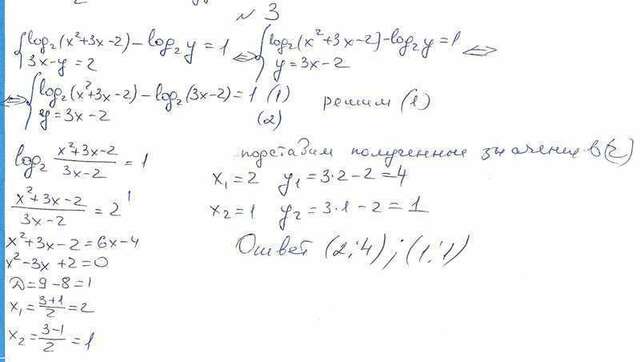 № 3
{log₂(x²+3x-2)-log₂y=1 ⇔ {log₂(x²+3x-2)-log₂y=1 ⇔
3x-y=2 y=3x-2
⇔ {log₂(x²+3x-2)-log₂(3x-2)=1 (1) решим (1)
y=3x-2 (2)
log₂ (x²+3x-2)/(3x-2) = 1
(x²+3x-2)/(3x-2) = 2¹
x²+3x-2=6x-4
x²-3x+2=0
Д=9-8=1
x₁=(3+1)/2=2
x₂=(3-1)/2=1
подставим полученные значение в (2)
x₁=2 y₁=3·2-2=4
x₂=1 y₂=3·1-2=1
Ответ (2;4);(1;1)